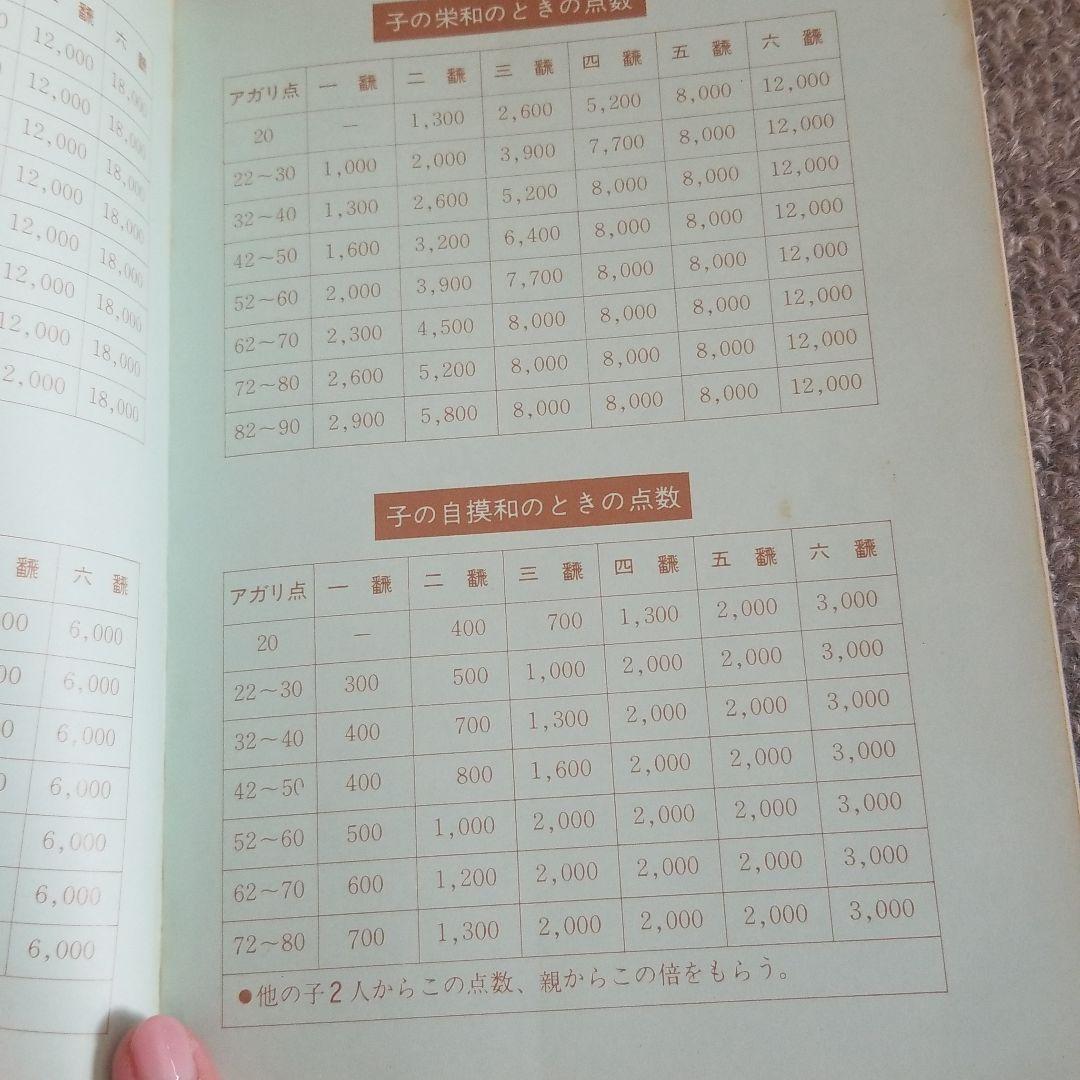 六 飜
12,000 18,000
12,000 18,000
12,000 18,000
12,000 18,000
12,000 18,000
12,000 18,000
12,000 18,000
2,000 18,000
飜 六 飜
00 6,000
00 6,000
0 6,000
6,000
6,000
6,000
6,000
子の栄和のときの点数
アガリ点 一 飜 二 飜 三 飜 四 飜 五 飜 六 飜
20 — 1,300 2,600 5,200 8,000 12,000
22～30 1,000 2,000 3,900 7,700 8,000 12,000
32～40 1,300 2,600 5,200 8,000 8,000 12,000
42～50 1,600 3,200 6,400 8,000 8,000 12,000
52～60 2,000 3,900 7,700 8,000 8,000 12,000
62～70 2,300 4,500 8,000 8,000 8,000 12,000
72～80 2,600 5,200 8,000 8,000 8,000 12,000
82～90 2,900 5,800 8,000 8,000 8,000 12,000
子の自摸和のときの点数
アガリ点 一 飜 二 飜 三 飜 四 飜 五 飜 六 飜
20 — 400 700 1,300 2,000 3,000
22～30 300 500 1,000 2,000 2,000 3,000
32～40 400 700 1,300 2,000 2,000 3,000
42～50 400 800 1,600 2,000 2,000 3,000
52～60 500 1,000 2,000 2,000 2,000 3,000
62～70 600 1,200 2,000 2,000 2,000 3,000
72～80 700 1,300 2,000 2,000 2,000 3,000
●他の子2人からこの点数、親からこの倍をもらう。